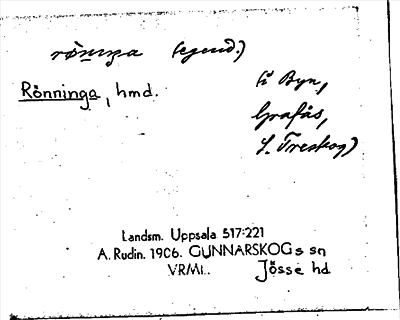 rönninga (egend.)
Rönninga, hmd.
(i Byn,
Grafås,
S. Treskog)
Landsm. Uppsala 517:221
A. Rudin. 1906. GUNNARSKOGs sn
VRML. Jösse hd